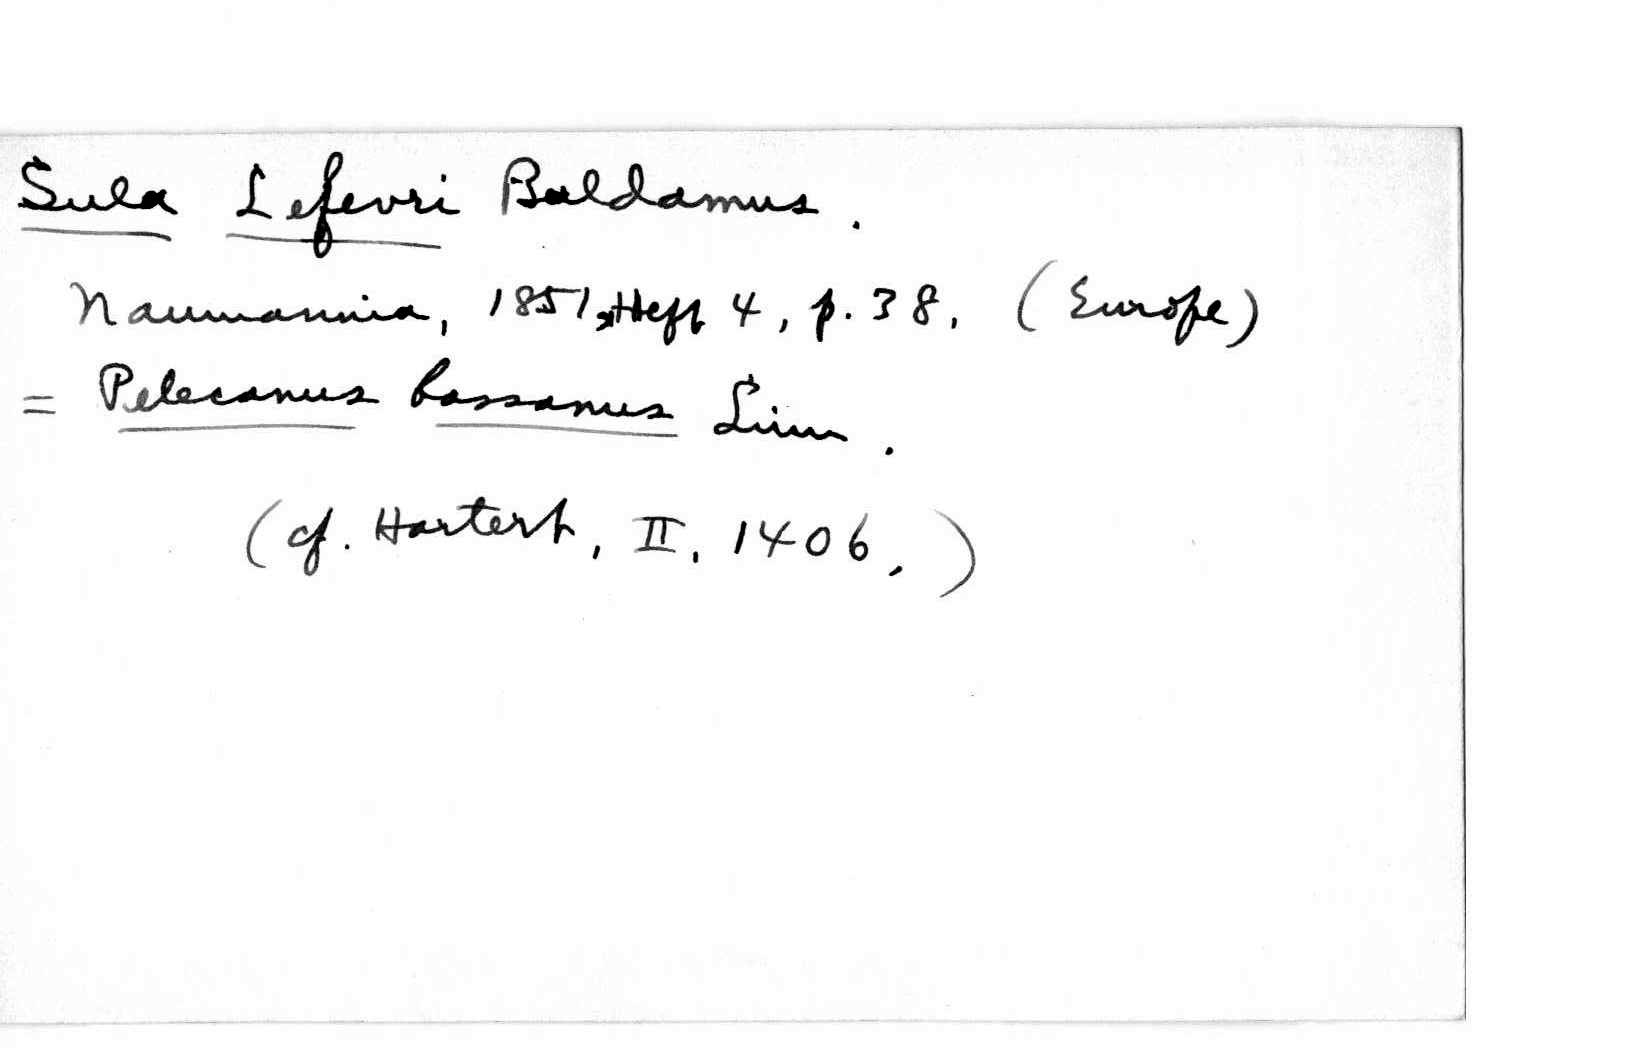 Sula Lefevri Baldamus.
Naumannia, 1851, Heft 4, p. 38. (Europe)
= Pelecanus bassanus Linn.
(cf. Hartert, II, 1406.)